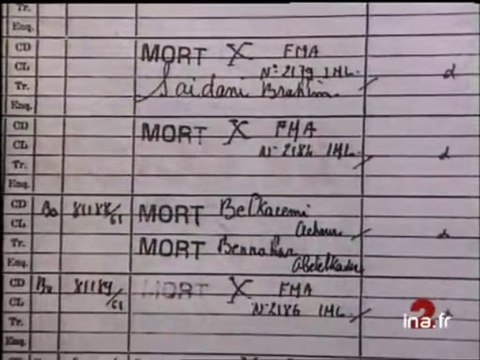 Tr.
Enq.
CD MORT X FMA
CL N° 2179 IML.
Tr. Saidani Brahim d
Enq.
CD MORT X FMA
CL N° 2184 IML.
Tr. d
Enq.
CD Bo 81188/61 MORT Belkacemi
CL Achour
Tr. MORT Bennahar
Enq. Abdelkader
CD 81189/61 MORT X FMA
CL N° 2186 IML.
Tr.
Enq.
CD
2
ina.fr